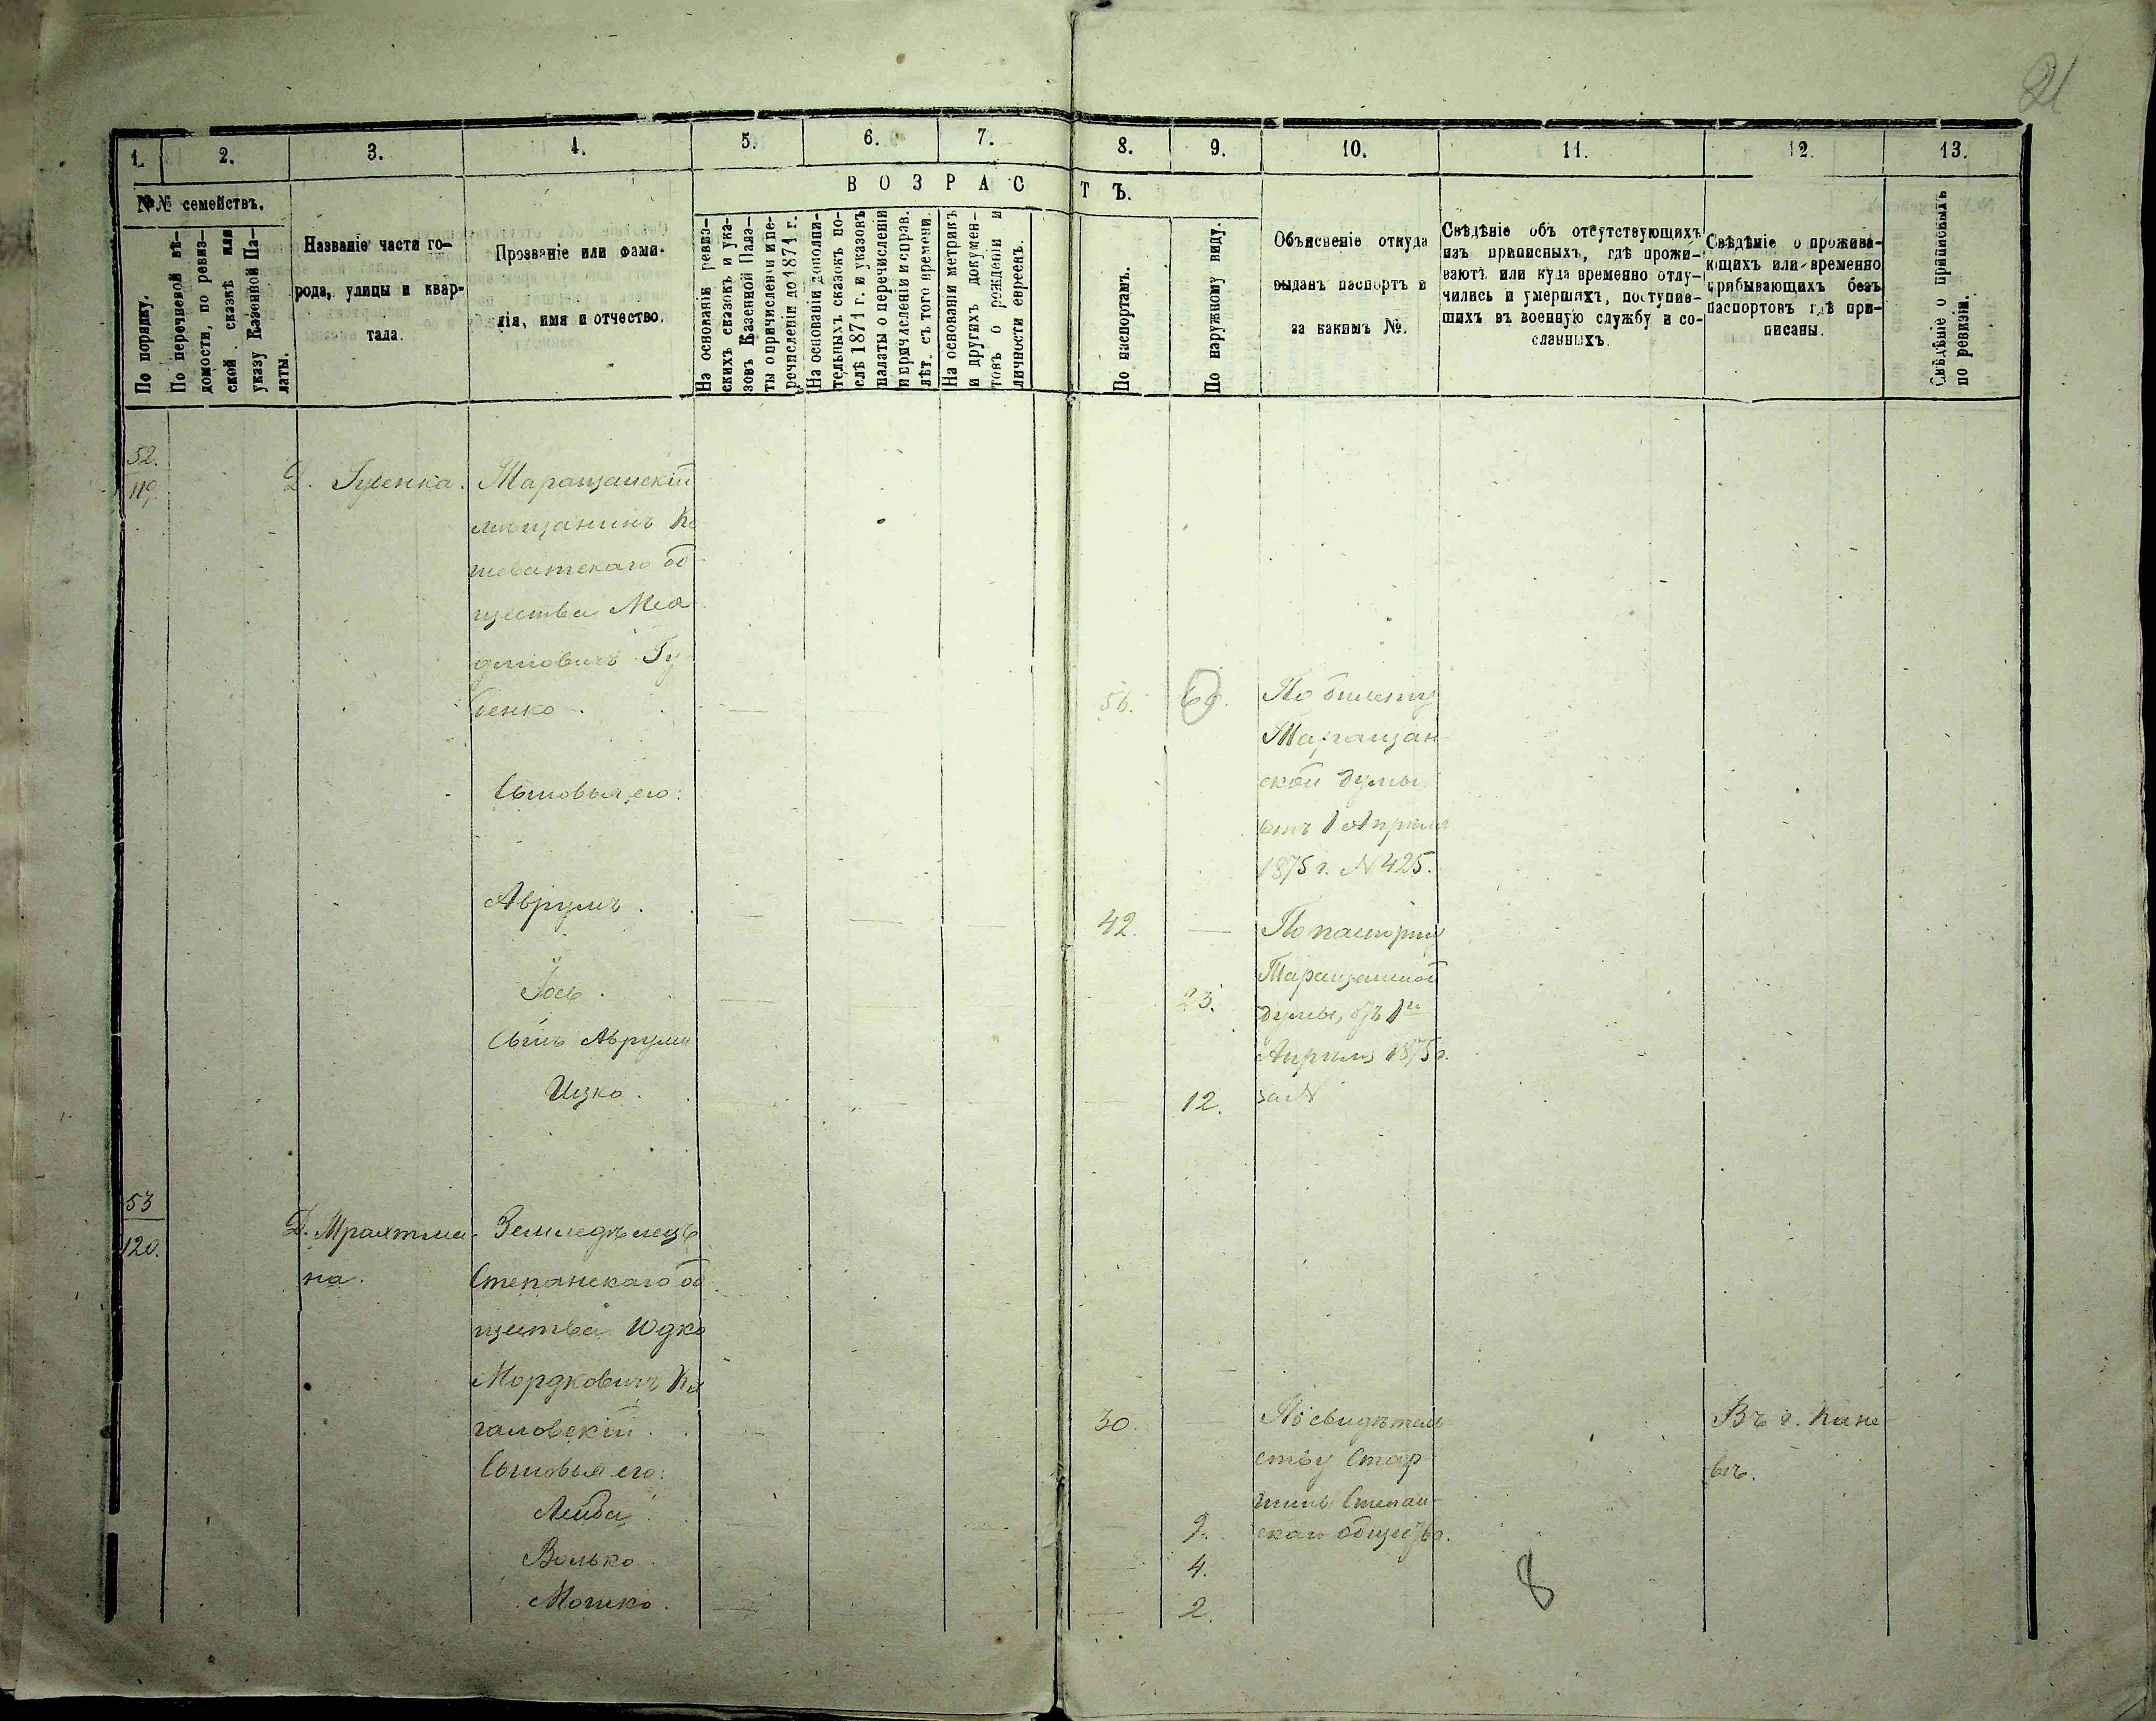 21
1. 2. 3. 4. 5. 6. 7. 8. 9. 10. 11. 12. 13.
№№ семействъ.
В О З Р А С Т Ъ.
По порядку.
По перечневой вѣ-
домости, по ревиз-
ской сказкѣ или
указу Казенной Па-
латы.
Названіе части го-
рода, улицы и квар-
тала.
Прозваніе или фами-
лія, имя и отчество.
На основаніи ревиз-
скихъ сказокъ и ука-
зовъ Казенной Пала-
ты о причисленіи и пе-
речисленіи до 1871 г.
На основаніи дополни-
тельныхъ сказокъ по-
слѣ 1871 г. и указовъ
палаты о перечисленіи
и причисленіи и справ.
лѣт. съ того времени.
На основаніи метрикъ
и другихъ докумен-
товъ о рожденіи и
личности евреевъ.
По паспортамъ.
По наружному виду.
Объясненіе откуда
выданъ паспортъ и
за какимъ №.
Свѣдѣніе объ отсутствующихъ
изъ приписныхъ, гдѣ прожи-
ваютъ или куда временно отлу-
чились и умершихъ, поступив-
шихъ въ военную службу и со-
сланныхъ.
Свѣдѣніе о прожива-
ющихъ или временно
прибывающихъ безъ
паспортовъ гдѣ при-
писаны.
Свѣдѣніе о приписныхъ
по ревизіи.
52.
119.
Д. Губенка.
Таращанскій
мѣщанинъ Ки
шеватскаго об-
щества
Гу-
бенко.
56. 69.
По билету
Таращан-
ской думы
отъ 1 Апрѣля
1875 г. N 425.
Сыновья его:
Аврумъ.
42.
По паспорту
Таращанской
думы, отъ 1го
Апрѣля 1875 г.
за N
Іось.
23.
Сынъ Аврума
Ицко.
12.
53
120.
на.
Земледѣлецъ
Степанскаго об-
щества Юдко
Мордковичъ Ка
галовскій.
30.
По свидѣтель-
ству Стар-
шины Степан-
скаго общества.
Въ г. Кане-
вѣ.
Сыновья его:
Лейба.
9.
Волько.
4.
Мошко.
2.
8